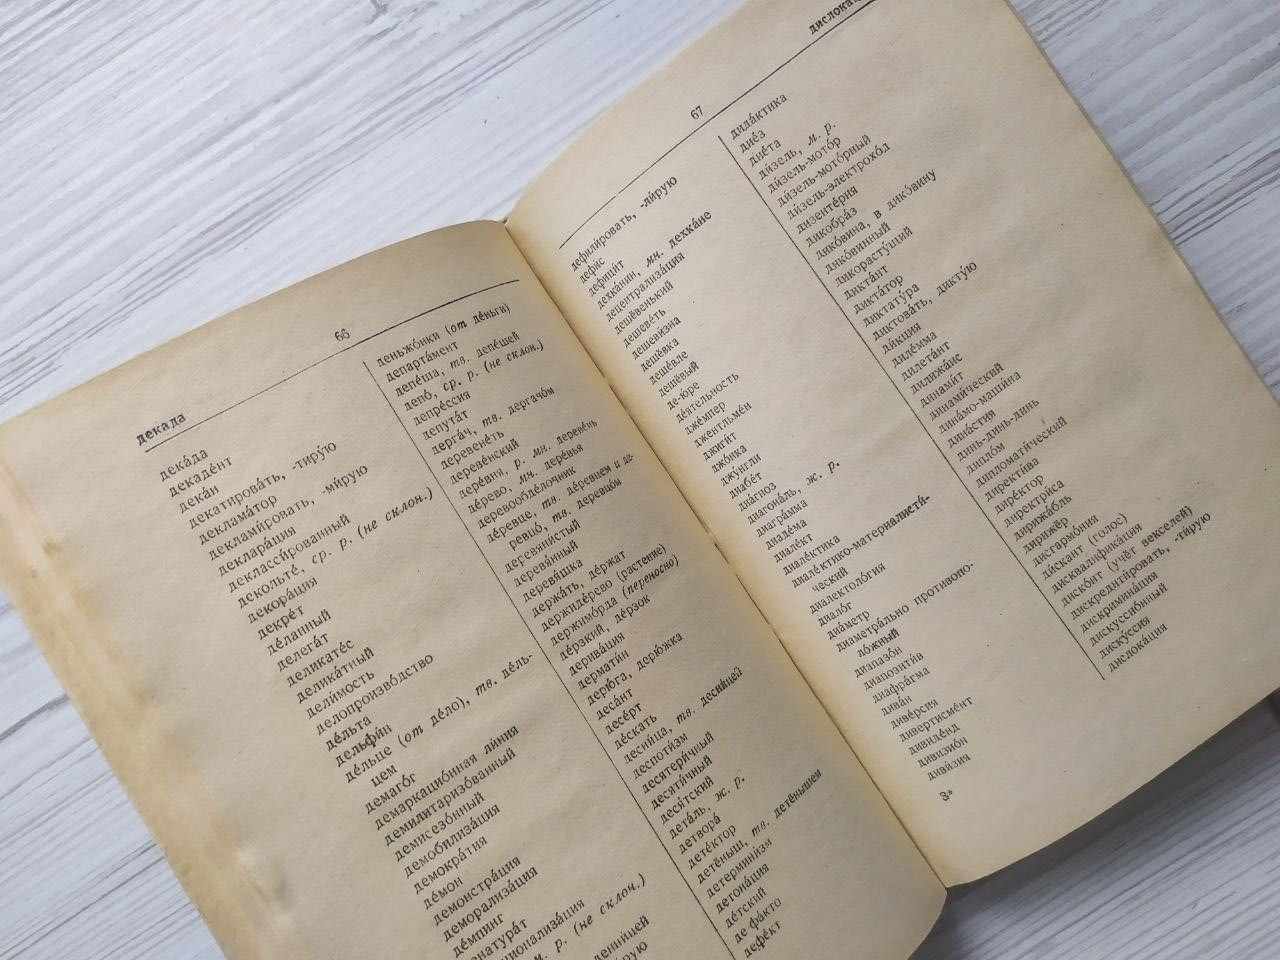 66
декада
дека́да
декаде́нт
дека́н
декати́ровать, -ти́рую
деклама́тор
деклами́ровать, -ми́рую
деклара́ция
деклассиро́ванный
декольте́, ср. р. (не склон.)
декора́ция
декре́т
де́ланный
делега́т
деликате́с
делика́тный
дели́мость
делопроизво́дство
де́льта
дельфи́н
де́льце (от де́ло), тв. де́ль-
цем
демаго́г
демаркацио́нная ли́ния
демилитаризо́ванный
демисезо́нный
демобилиза́ция
демокра́тия
де́мон
демонстра́ция
деморализа́ция
де́мпинг
м. р. (не склон.)
деньжо́нки (от де́ньги)
департа́мент
депе́ша, тв. депе́шей
депо́, ср. р. (не склон.)
депре́ссия
депута́т
дерга́ч, тв. дергачо́м
деревене́ть
дереве́нский
дере́вня, р. мн. дереве́нь
де́рево, мн. дере́вья
деревообде́лочник
де́ревце, тв. де́ревцем и де-
ревцо́, тв. деревцо́м
деревяни́стый
деревя́нный
деревя́шка
держа́ть, де́ржат
держиде́рево (растение)
держимо́рда (переносно)
де́рзкий, де́рзок
дерива́ция
дермати́н
дерю́га, дерю́жка
деса́нт
десе́рт
де́скать
десни́ца, тв. десни́цей
деспоти́зм
десятери́чный
десяти́чный
деся́тский
дета́ль, ж. р.
детвора́
дете́ктор
детёныш, тв. детёнышем
детермини́зм
детона́ция
де́тский
де фа́кто
дефе́кт
67
дефили́ровать, -ли́рую
дефи́с
дефици́т
дехка́нин, мн. дехка́не
децентрализа́ция
дешёвенький
дешеве́ть
дешеви́зна
дешёвка
деше́вле
дешёвый
де-ю́ре
де́ятельность
дже́мпер
джентльме́н
джиги́т
джо́нка
джу́нгли
диабе́т
диа́гноз
диагона́ль, ж. р.
диагра́мма
диаде́ма
диале́кт
диале́ктика
диале́ктико-материалисти́-
ческий
диалектоло́гия
диало́г
диа́метр
диаметра́льно противопо-
ло́жный
диапазо́н
диапозити́в
диафра́гма
дива́н
диве́рсия
дивертисме́нт
дивиде́нд
дивизио́н
диви́зия
3*
дида́ктика
дие́з
дие́та
ди́зель, м. р.
ди́зель-мото́р
ди́зель-мото́рный
ди́зель-электрохо́д
дизентери́я
дикобра́з
дико́вина, в дико́вину
дико́винный
дикорасту́щий
дикта́нт
дикта́тор
диктату́ра
диктова́ть, дикту́ю
ди́кция
диле́мма
дилета́нт
дилижа́нс
динами́т
динами́ческий
дина́мо-маши́на
дина́стия
динь-динь-динь
дипло́м
дипломати́ческий
директи́ва
дире́ктор
директри́са
дирижа́бль
дирижёр
дисгармо́ния
ди́скант (голос)
дисквалифика́ция
диско́нт (учёт векселей)
дискредити́ровать, -ти́рую
дискримина́ция
дискуссио́нный
диску́ссия
дислока́ция